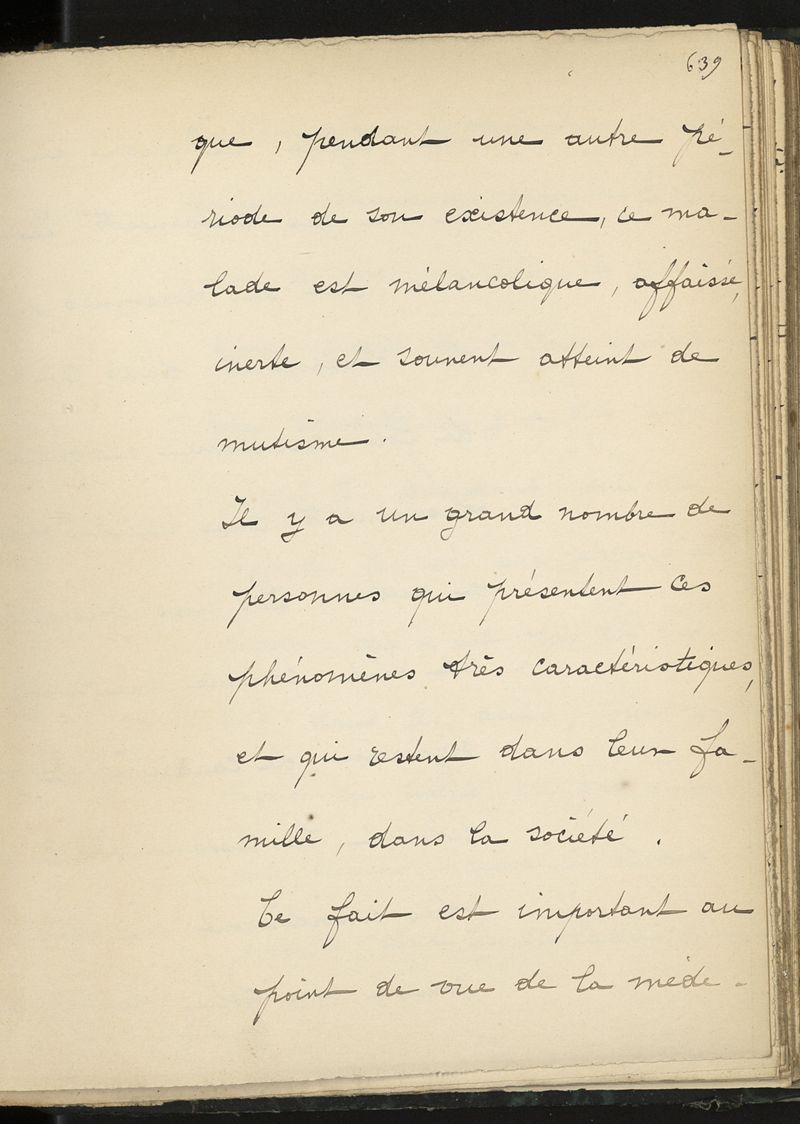 639
que, pendant une autre pé-
riode de son existence, ce ma-
lade est mélancolique, affaissé,
inerte, et souvent atteint de
mutisme.
Il y a un grand nombre de
personnes qui présentent ces
phénomènes très caractéristiques,
et qui restent dans leur fa-
mille, dans la société.
Ce fait est important au
point de vue de la méde-